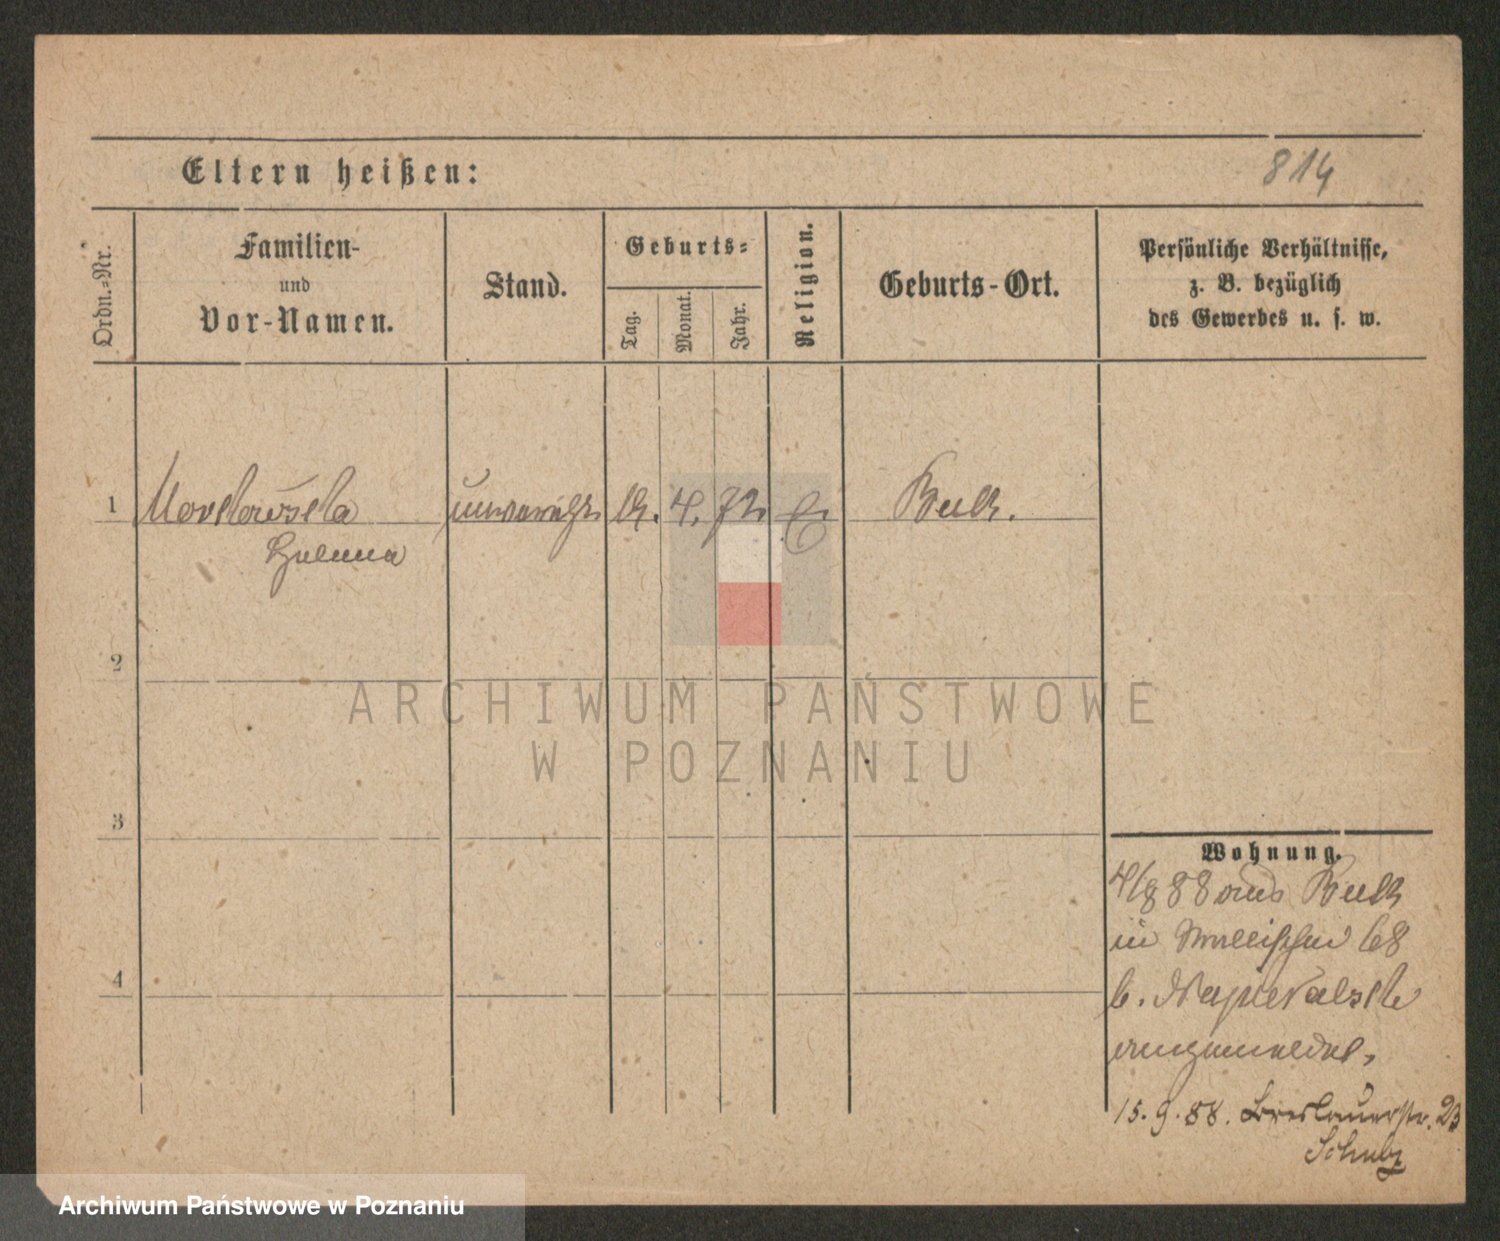 Eltern heißen:
814
Ordn.-Nr.
Familien-
und
Vor-Namen.
Stand.
Geburts-
Tag.
Monat.
Jahr.
Religion.
Geburts-Ort.
Persönliche Verhältnisse,
z. B. bezüglich
des Gewerbes u. s. w.
1
unverehl. 4. 72 Buk.
Helena
2
ARCHIWUM PAŃSTWOWE
W POZNANIU
3
Wohnung.
4/8 88 aus Buk
in Wallischei 68
b.
angemeldet,
4
15. 9. 88. Breslauerstr. 23
Schulz
Archiwum Państwowe w Poznaniu